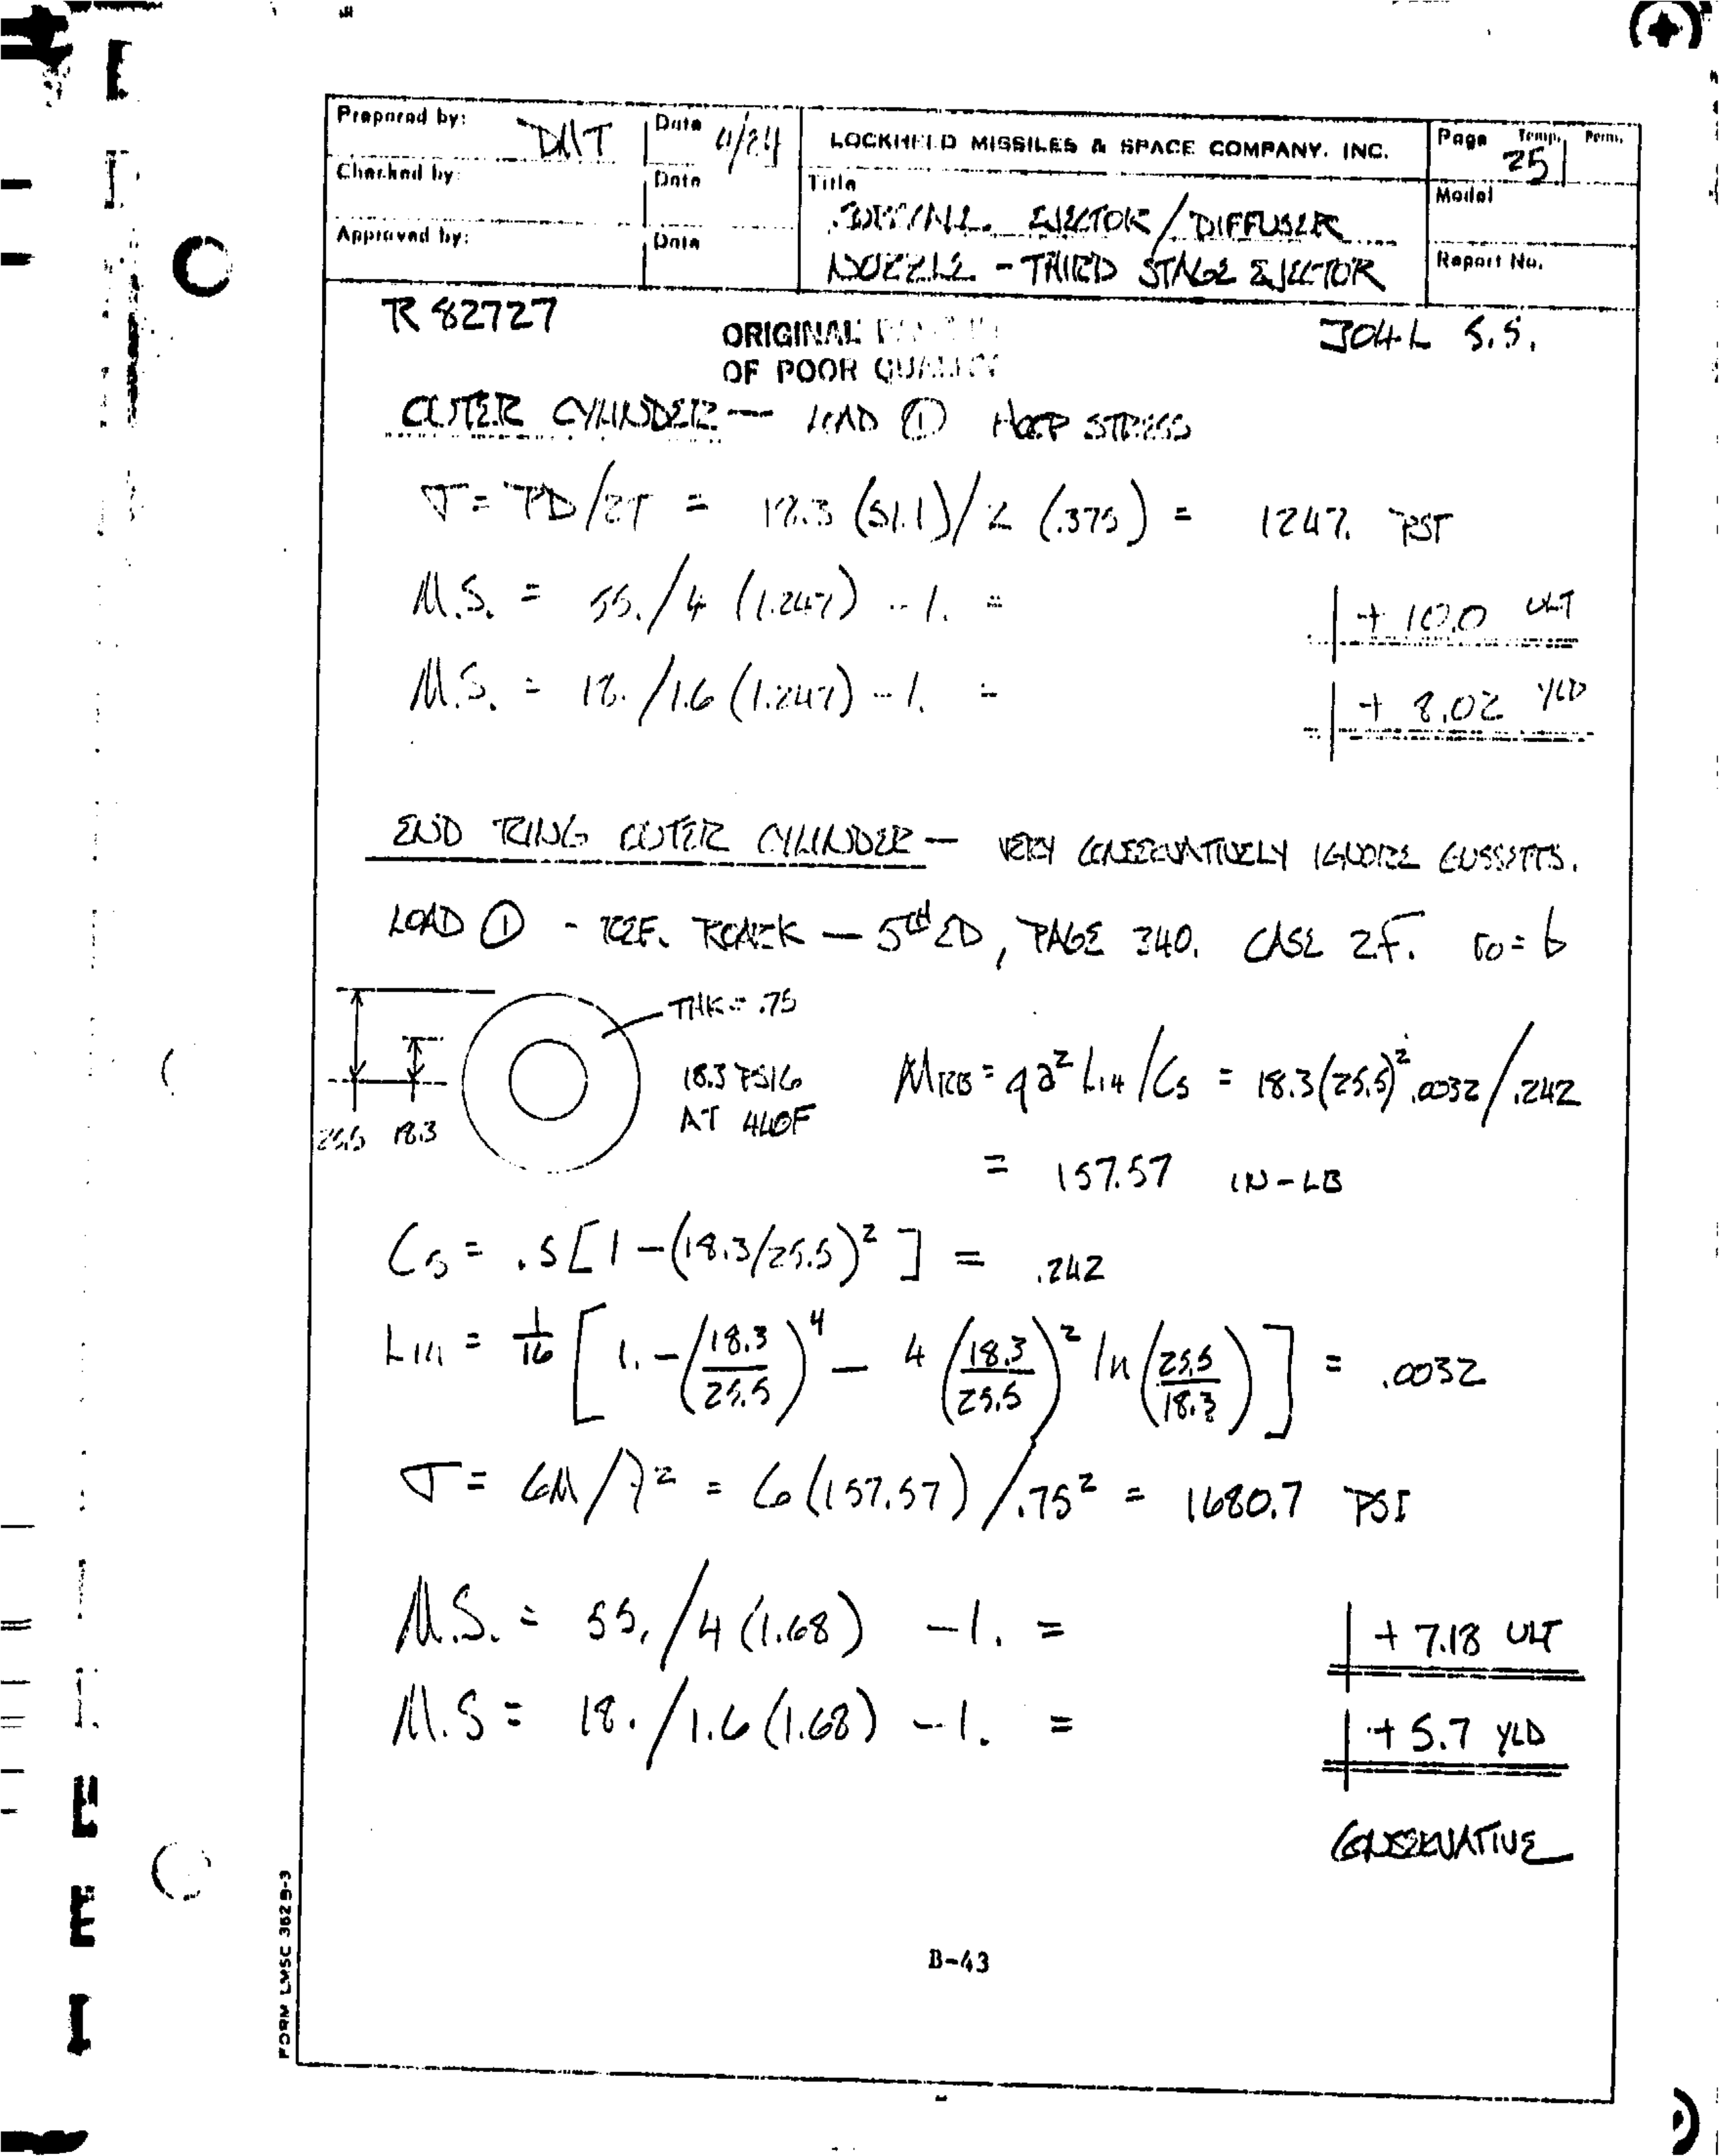 Prepared by: DMT Date 4/24 LOCKHEED MISSILES & SPACE COMPANY, INC. Page Temp. Perm.
25
Checked by: Date Title Model
EJECTOR / DIFFUSER
Approved by: Date NOZZLE - THIRD STAGE EJECTOR Report No.
R 82727 304L S.S.
ORIGINAL
OF POOR QUALITY
OUTER CYLINDER — LOAD ① HOOP STRESS
σ = PD/2T = 18.3 (51.1)/2 (.375) = 1247. PSI
M.S. = 55./4 (1.247) - 1. = + 10.0 ULT
M.S. = 18./1.6 (1.247) - 1. = + 8.02 YLD
END RING OUTER CYLINDER — VERY CONSERVATIVELY IGNORE GUSSETTS.
LOAD ① - REF. ROARK — 5TH ED, PAGE 340. CASE 2F. ro = b
THK = .75
18.3 PSIG
AT 440F
25.5 18.3
MRB = qa² L14 / C5 = 18.3(25.5)² .0032 / .242
= 157.57 IN-LB
C5 = .5 [1 - (18.3/25.5)²] = .242
L14 = 1/16 [1. - (18.3/25.5)⁴ - 4 (18.3/25.5)² ln (25.5/18.3)] = .0032
σ = 6M/t² = 6(157.57)/.75² = 1680.7 PSI
M.S. = 55./4(1.68) - 1. = + 7.18 ULT
M.S = 18./1.6(1.68) - 1. = + 5.7 YLD
CONSERVATIVE
B-43
FORM LMSC 3629-3